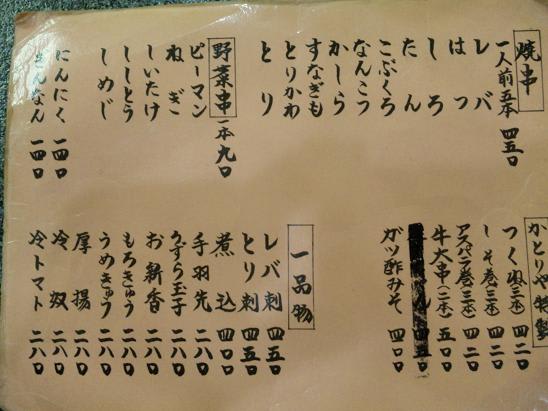 焼串
一人前五本 四五〇
レバ
はつ
しろ
たん
こぶくろ
なんこつ
かしら
すなぎも
とりかわ
とり
野菜串 一本九〇
ピーマン
ねぎ
しいたけ
ししとう
しめじ
にんにく 一四〇
ぎんなん 一四〇
かとりや特製
つくね(三本) 四二〇
しそ巻(三本) 四二〇
アスパラ巻(三本) 四二〇
牛大串(二本) 五〇〇
ガツ酢みそ 四〇〇
一品物
レバ刺 四五〇
とり刺 四五〇
煮込 四〇〇
手羽先 二八〇
うずら玉子 二八〇
お新香 二八〇
もろきゅう 二八〇
うめきゅう 二八〇
厚揚 二八〇
冷奴 二八〇
冷トマト 二八〇